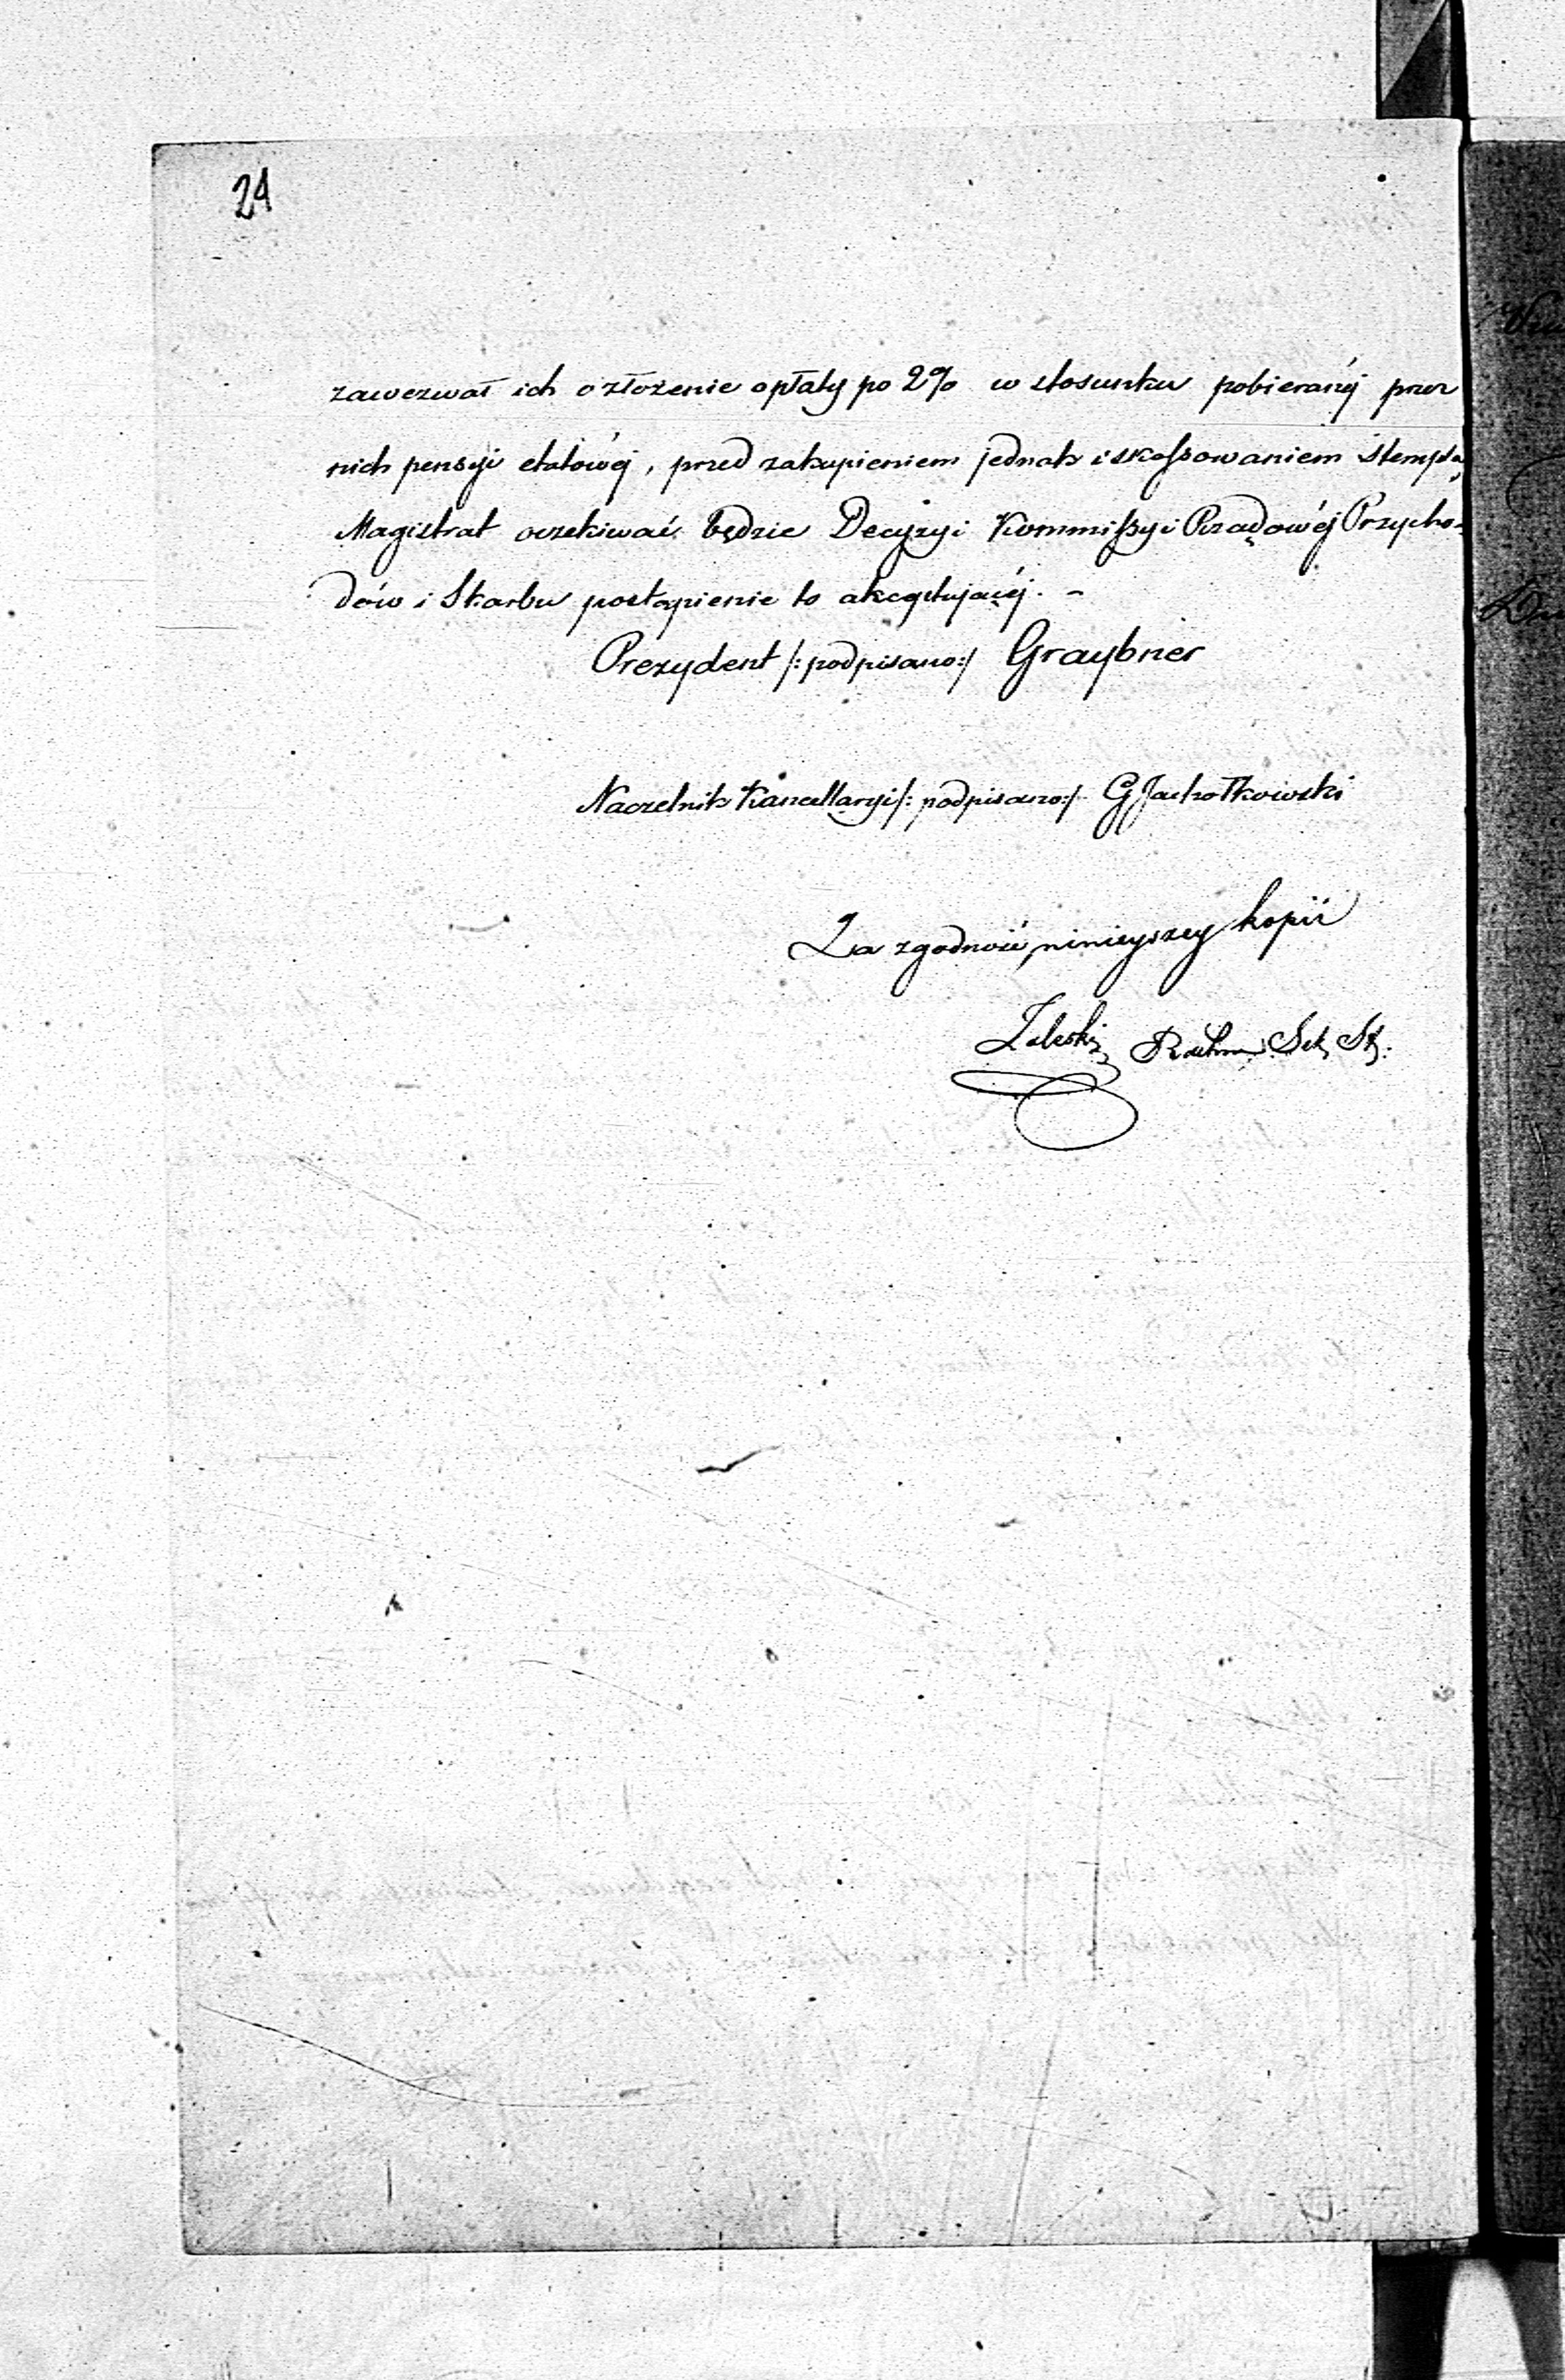 24
zawezwał ich o złożenie opłaty po 2% w stosunku pobieranéj przez
nich pensyi etatowéj, przed zakupieniem jednak i skassowaniem stempla,
Magistrat oczekiwać będzie Decyzyi Kommissyi Rządowéj Przycho-
dów i Skarbu postąpienie to akceptującéj. -
Prezydent /:podpisano:/ Graybner
Naczelnik Kancellaryi /:podpisano:/ G Jachołkowski
Za zgodność ninieyszey kopii
Zaleski